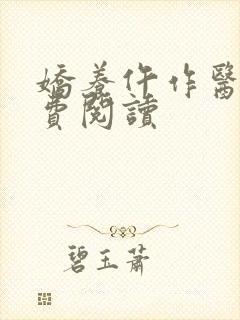 嬌養仵作醫
費閱讀
碧玉蕭